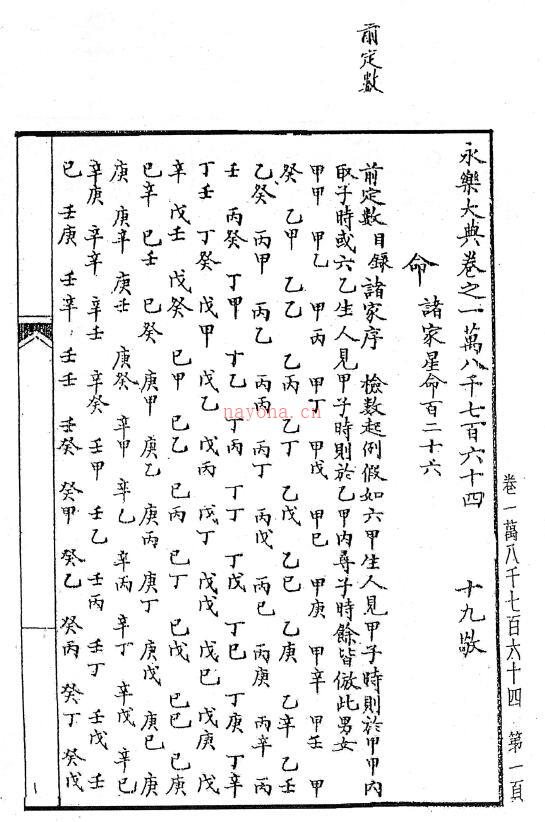 前定數
卷一萬八千七百六十四 第一頁
永樂大典卷之一萬八千七百六十四 十九敬
命 諸家星命百二十六
前定數 目錄諸家序 檢數起例假如六甲生人見甲子時則於甲甲内
取子時或六乙生人見甲子時則於乙甲内尋子時餘皆倣此男女
甲甲 甲乙 甲丙 甲丁 甲戊 甲巳 甲庚 甲辛 甲壬 甲
癸 乙甲 乙乙 乙丙 乙丁 乙戊 乙巳 乙庚 乙辛 乙壬
乙癸 丙甲 丙乙 丙丙 丙丁 丙戊 丙巳 丙庚 丙辛 丙
壬 丙癸 丁甲 丁乙 丁丙 丁丁 丁戊 丁巳 丁庚 丁辛
丁壬 丁癸 戊甲 戊乙 戊丙 戊丁 戊戊 戊巳 戊庚 戊
辛 戊壬 戊癸 巳甲 巳乙 巳丙 巳丁 巳戊 巳巳 巳庚
巳辛 巳壬 巳癸 庚甲 庚乙 庚丙 庚丁 庚戊 庚巳 庚
庚 庚辛 庚壬 庚癸 辛甲 辛乙 辛丙 辛丁 辛戊 辛巳
辛庚 辛辛 辛壬 辛癸 壬甲 壬乙 壬丙 壬丁 壬戊 壬
巳 壬庚 壬辛 壬壬 壬癸 癸甲 癸乙 癸丙 癸丁 癸戊
nayona.cn